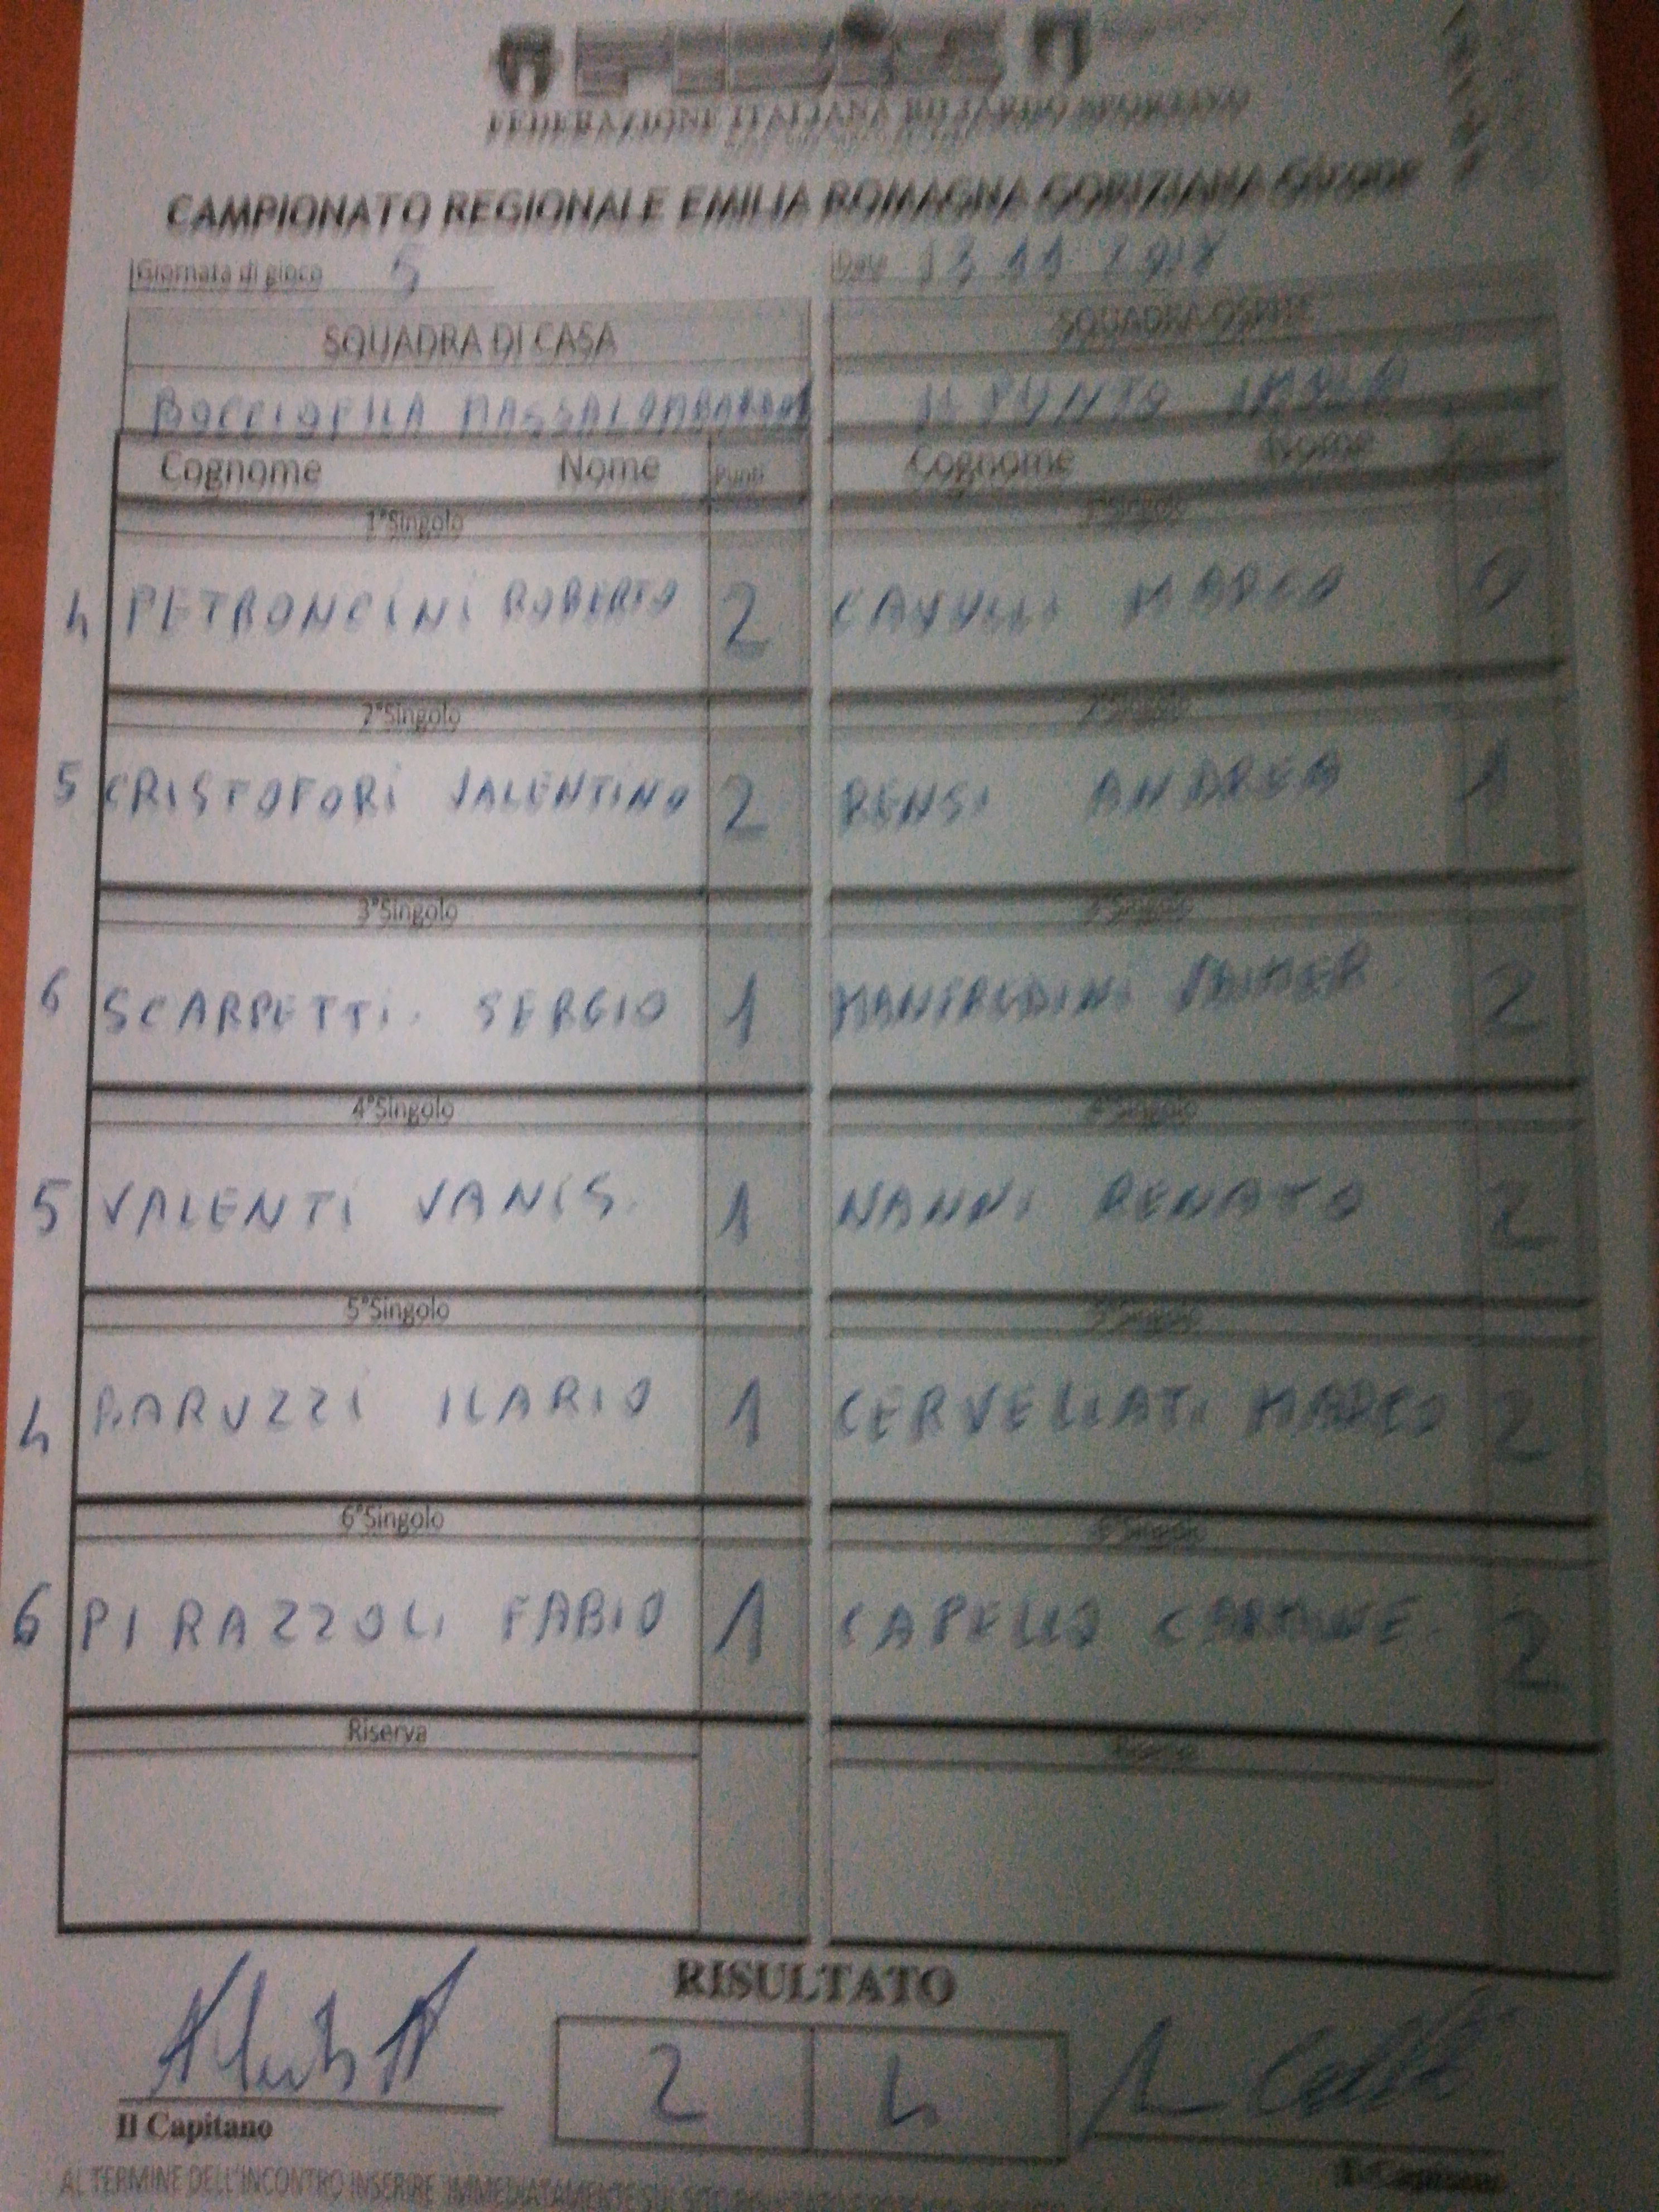 FEDERAZIONE ITALIANA BILIARDO SPORTIVO
CAMPIONATO REGIONALE EMILIA ROMAGNA GORIZIANA
Giornata di gioco 5 Data 13 11 2018
SQUADRA DI CASA SQUADRA OSPITE
BOCCIOFILA MASSALOMBARDA IL PUNTO IMOLA
Cognome Nome Punti Cognome Nome
1°Singolo 1°Singolo
4 PETRONCINI ROBERTO 2 MARCO 0
2°Singolo 2°Singolo
5 CRISTOFORI VALENTINO 2 RENSI ANDREA 1
3°Singolo 3°Singolo
6 SCARPETTI SERGIO 1 MANFREDINI 2
4°Singolo 4°Singolo
5 VALENTI VANIS 1 NANNI RENATO 2
5°Singolo 5°Singolo
4 BARUZZI ILARIO 1 CERVELLATI MARCO 2
6°Singolo 6°Singolo
6 PIRAZZOLI FABIO 1 CAPELLO CARMINE 2
Riserva Riserva
RISULTATO
2 4
Il Capitano Il Capitano
AL TERMINE DELL'INCONTRO INSERIRE IMMEDIATAMENTE